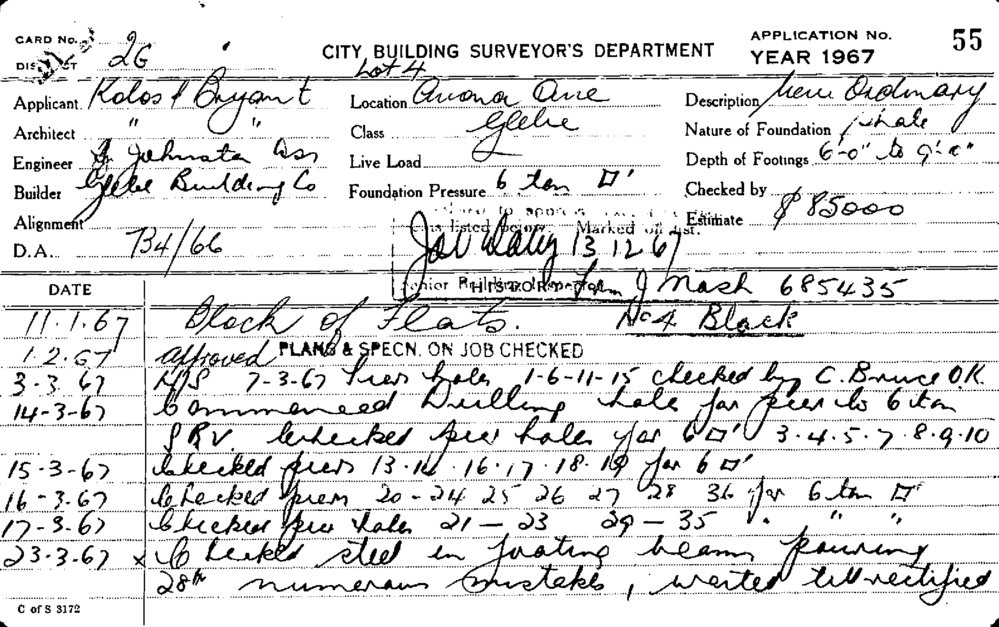 CARD No. 26
DISTRICT
CITY BUILDING SURVEYOR'S DEPARTMENT
APPLICATION No.
YEAR 1967
55
Lot 4
Applicant Kolos & Bryant
Location Avona Ave
Description New Ordinary
Architect " "
Class Glebe
Nature of Foundation Shale
Engineer Johnston Assn
Live Load
Depth of Footings 6'-0" to 9'-0"
Builder Glebe Building Co
Foundation Pressure 6 ton □'
Checked by
Alignment
Estimate $85000
D.A. 734/66
listed below. Marked off list.
13 12 67
Senior Building Inspector
HISTORY
J Nash 685435
DATE
11.1.67 Block of Flats. No 4 Block
1.2.67 Approved PLANS & SPECN. ON JOB CHECKED
3-3-67 7-3-67 Piers holes 1-6-11-15 checked by C. Bruce O.K.
14-3-67 Commenced Drilling hole for pier to 6 ton
SRV. Checked pier holes for 6 □' 3.4.5.7.8.9.10
15-3-67 Checked piers 13.14.16.17.18.19 for 6 □'
16-3.67 Checked piers 20-24 25 26 27 28 36 for 6 ton □'
17-3-67 Checked pier holes 21 — 23 29 — 35 " " "
23-3-67 x Checked steel in footing beams pouring
28th numerous mistakes, waited till rectified
C of S 3172